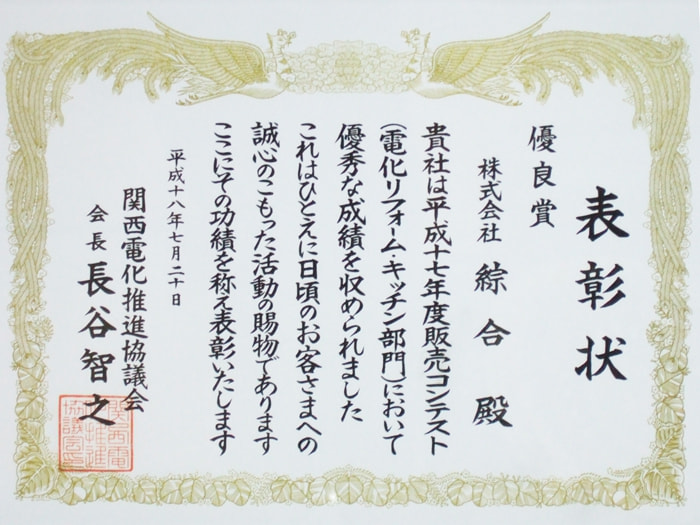 表彰状
優良賞
株式会社 綜合 殿
貴社は平成十七年度販売コンテスト
(電化リフォーム・キッチン部門)において
優秀な成績を収められました
これはひとえに日頃のお客さまへの
誠心のこもった活動の賜物であります
ここにその功績を称え表彰いたします
平成十八年七月二十日
関西電化推進協議会
会長 長谷智之
関西電
化推進
協議会印